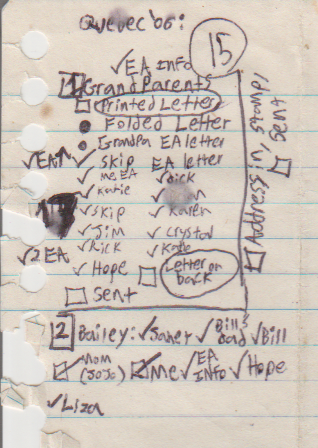 Quevec '06:
15
✓EA Info
1 GrandParents
☐ Printed Letter
• Folded Letter
• Grandpa EA letter
✓EA↑ ✓ Skip EA letter
✓ me EA ✓Dick
✓ Katie
✓Skip ✓Karen
✓Jim ✓Crystal
✓2 EA ✓Rick ✓Katie
✓Hope ☐ Letter on back
☐ Sent
☐ Address/Stamps
☐ Sent
2 Bailey: ✓ ✓Bill's Dad ✓Bill
☑ Mom (JoJo) ☑ Me ✓EA INFO ✓Hope
✓Liza